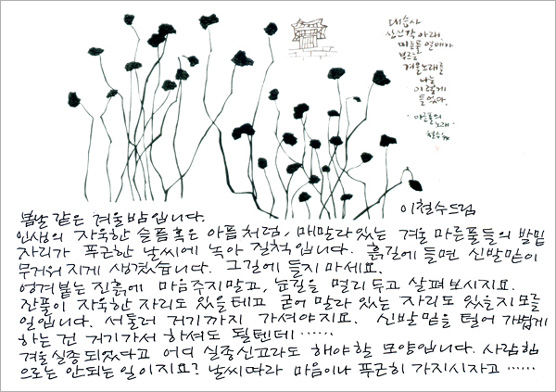 산신각 아래,
마른풀 열매가
부르는
겨울노래를
나는
이렇게
들었다.
마른풀의
노래
철수
이철수드림
봄날 같은 겨울밤입니다.
인생의 자욱한 슬픔혹은 아픔처럼, 메말라있는 겨울 마른풀들의 발밑
자리가 푸근한 날씨에 녹아 질척입니다. 흙길에 들면 신발만이
무거워지게 생겼습니다. 그길에 들지 마세요.
엉겨붙는 진흙에 마음주지말고, 눈길을 멀리두고 살펴 보시지요.
잔풀이 자욱한 자리도 있을테고 굳어 말라 있는 자리도 있을지 모를
일입니다. 서둘러 거기까지 가셔야지요. 신발밑을 털어 가볍게
하는 건 거기가서 하셔도 될텐데 ……
겨울실종되었다고 어디 실종신고라도 해야할 모양입니다. 사람힘
으로는 안되는 일이지요? 날씨따라 마음이나 푸근히 가지시자고 ……